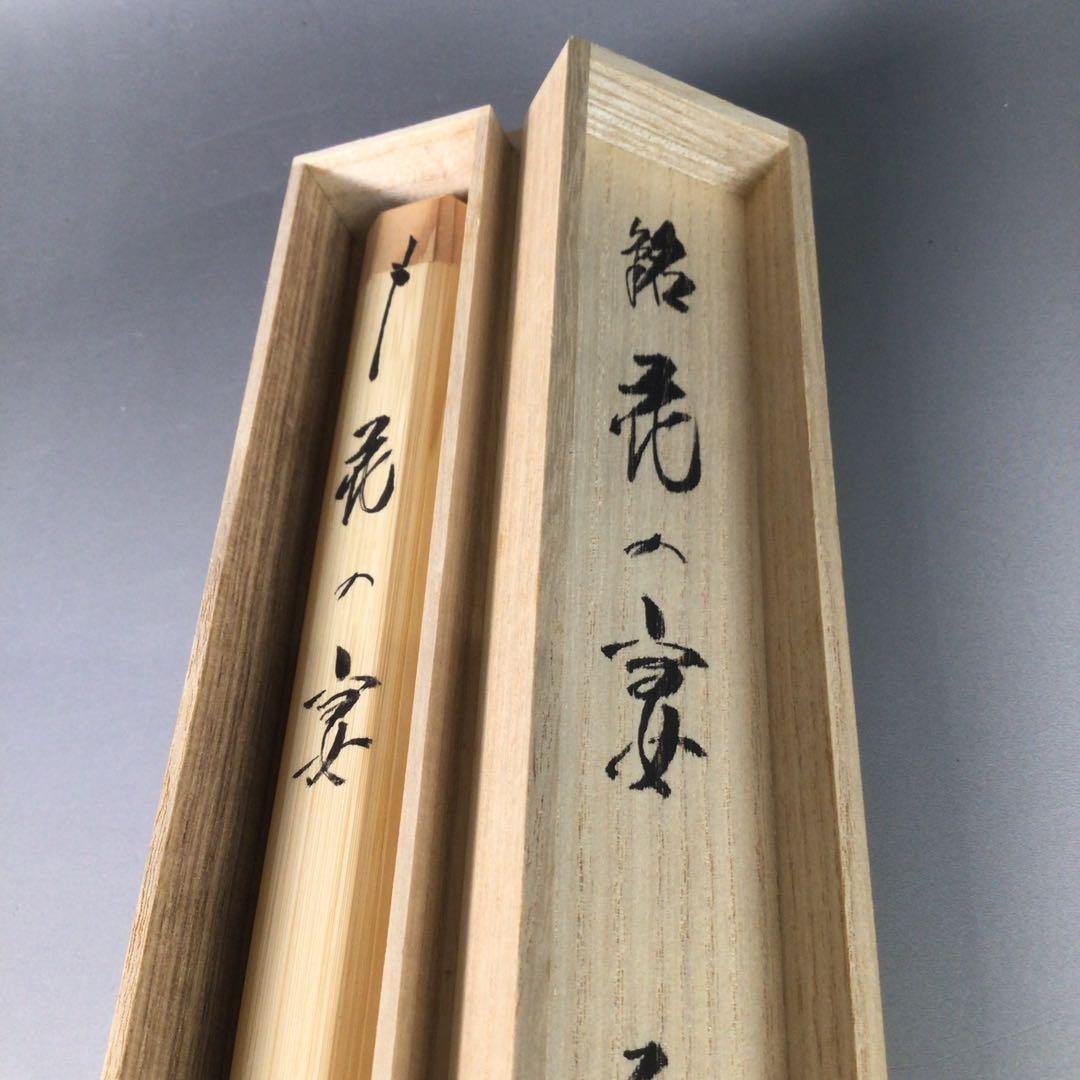 銘 花の宴
花の宴